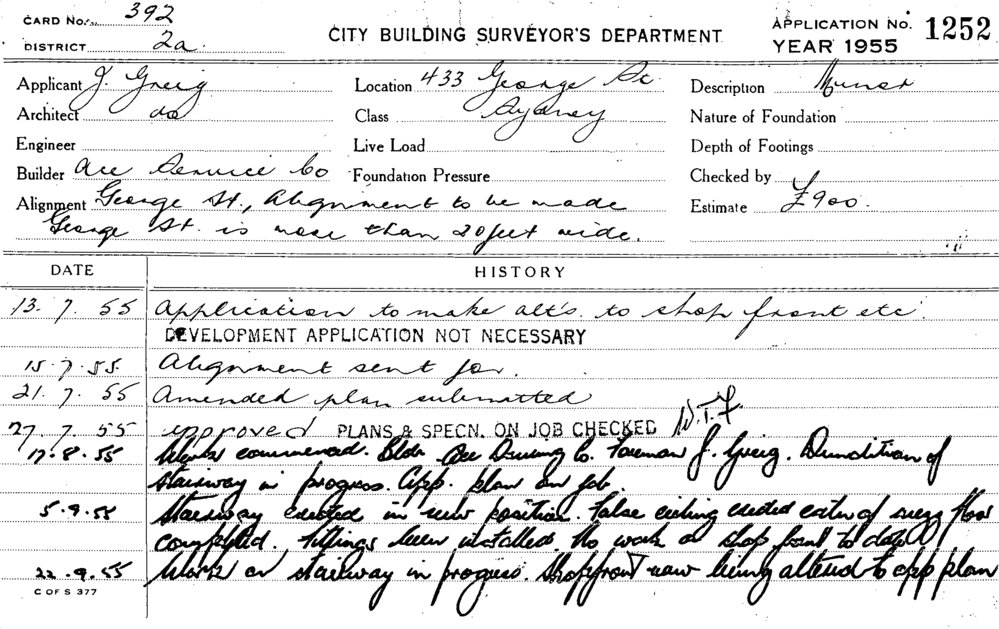 CARD No. 392
DISTRICT 2a.
CITY BUILDING SURVEYOR'S DEPARTMENT
APPLICATION No. 1252
YEAR 1955
Applicant J. Greig
Location 433 George St
Description
Architect do
Class Sydney
Nature of Foundation
Engineer
Live Load
Depth of Footings
Builder Ace Service Co
Foundation Pressure
Checked by
Alignment George St., Alignment to be made
Estimate £900.
George St. is more than 20 feet wide.
DATE HISTORY
13. 7. 55 Application to make alt's. to shop front etc.
DEVELOPMENT APPLICATION NOT NECESSARY
15.7.55. Alignment sent for.
21. 7. 55 Amended plan submitted
27. 7. 55 approved PLANS & SPECN. ON JOB CHECKED
17.8.55 Work commenced. Bldr. Ace Co. Foreman J. Greig. of
stairway in progress. App. plan on job.
5.9.55 Stairway erected in new position. False ceiling erected of mezz floor
completed. Fittings been installed. No work on shop front to date
22.9.55 Work on stairway in progress. Shopfront now being altered to app plan
C OF S 377